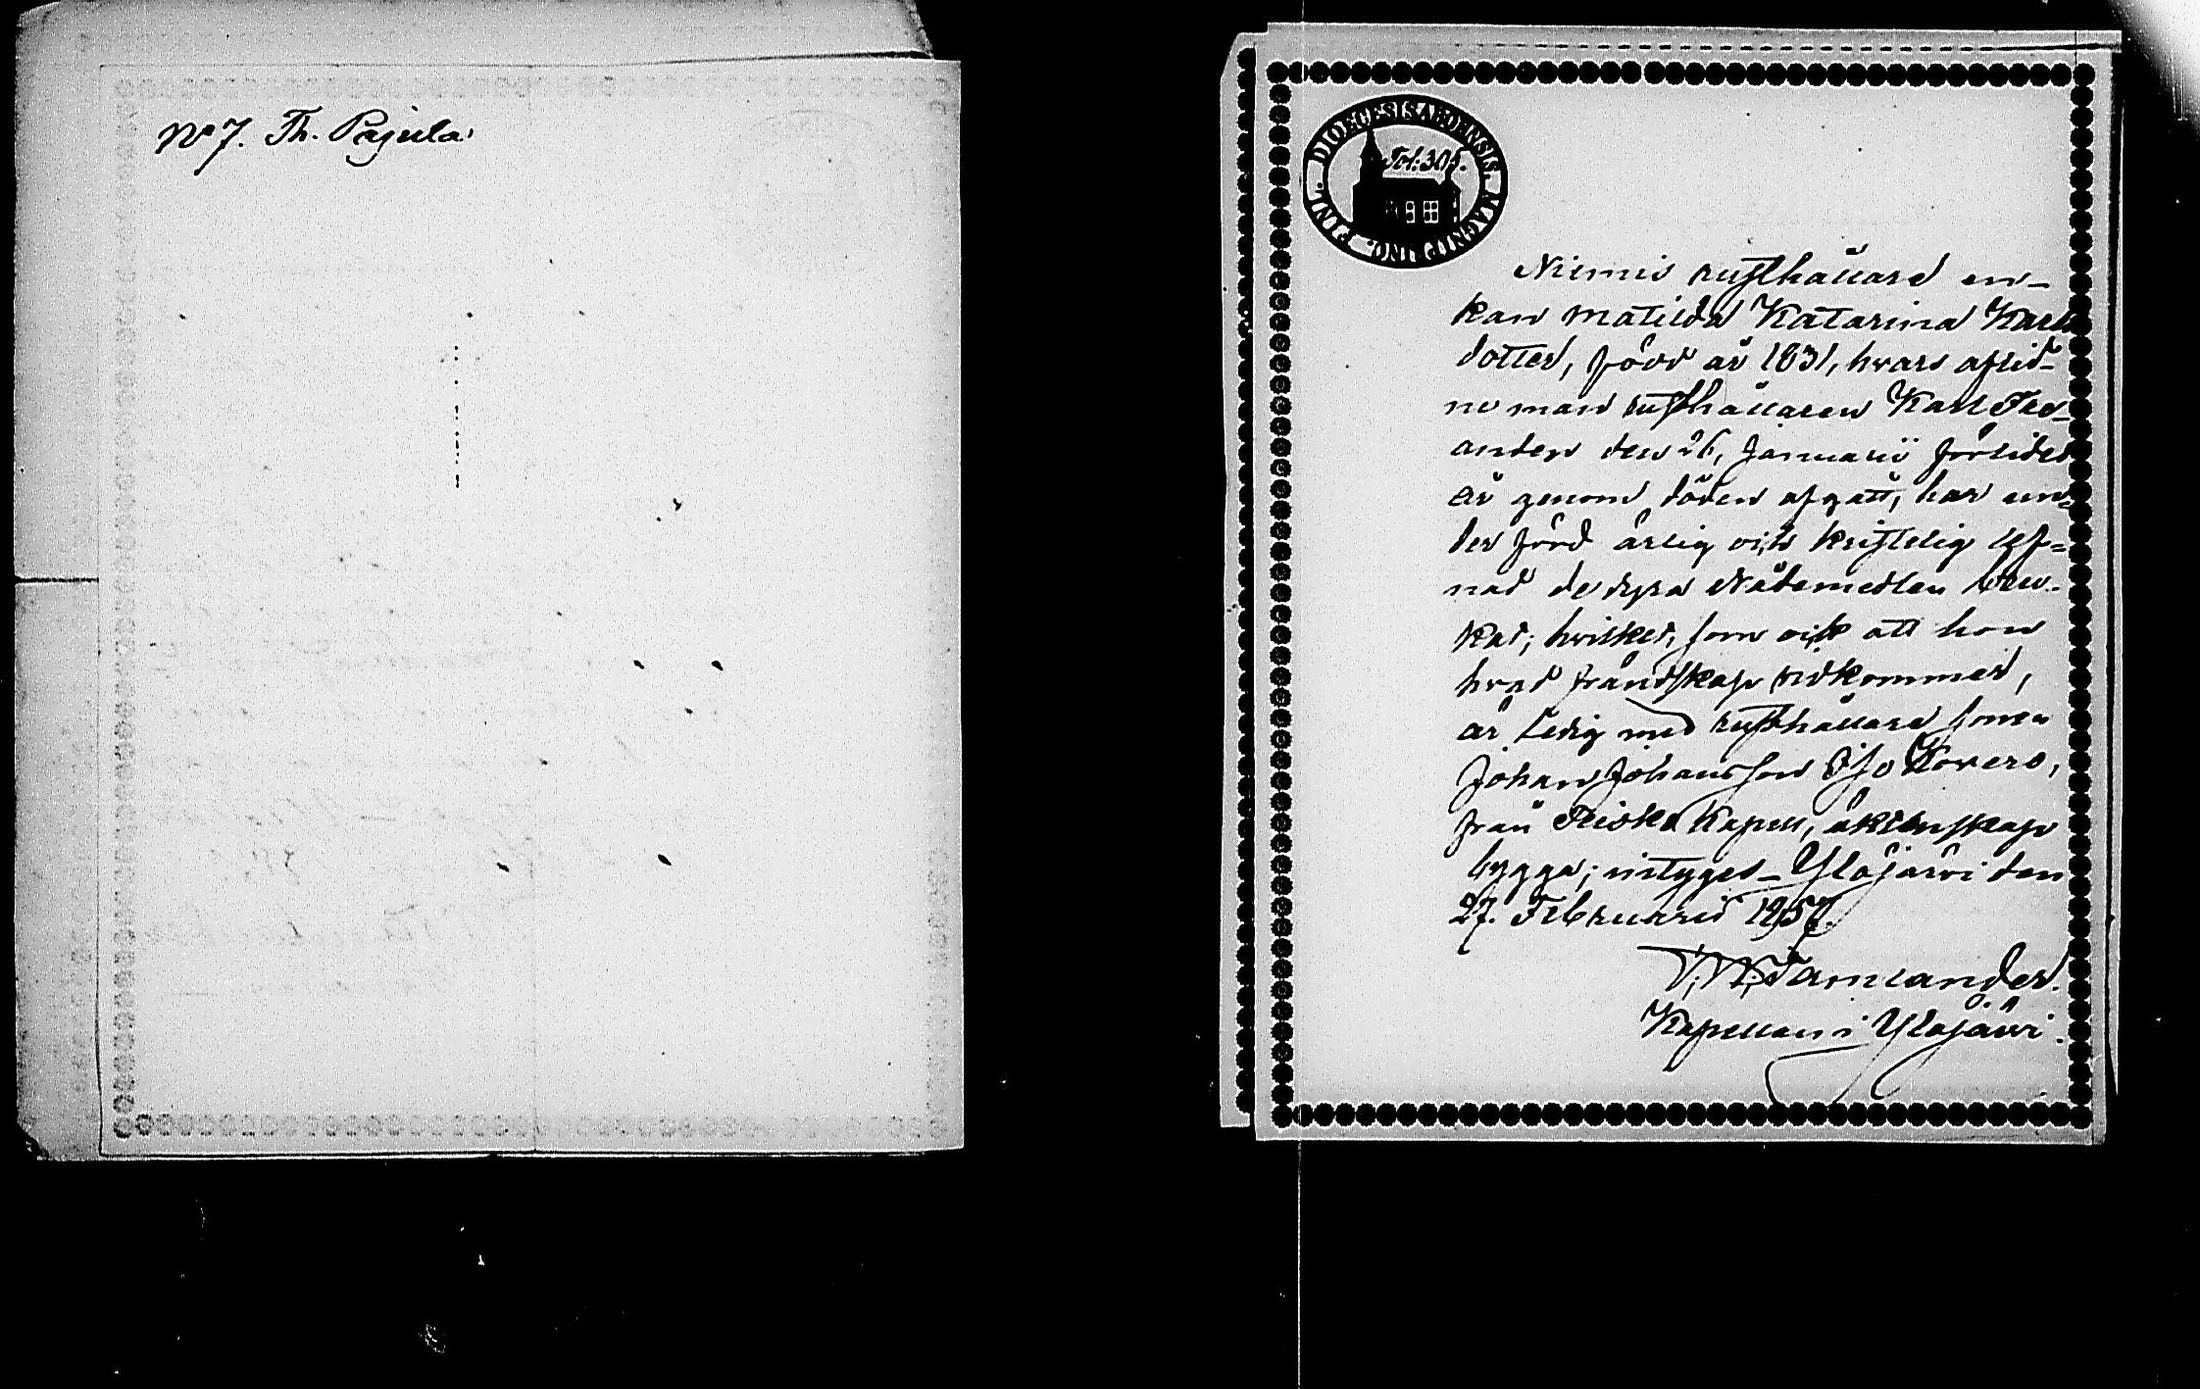 No 7. Th. Pajula
DIOECESIS ABOENSIS. MAGNI PRINC. FINL.
Fol: 305.
Niemis rusthållars en-
kan Matilda Katarina Karls
dotter, född år 1831, hvars aflid-
ne man rusthållaren Karl
den 26, Januarii förlidet
år genom döden afgått, har un-
der förd ärlig och kristelig lef-
nad de dyra Nådemedlen bru-
kat; hvilket, som ock att hon
hvad frändskap vidkommer,
är ledig med rusthållars sonen
Johan Johansson Kovero,
från Kapell, äktenskap
bygga; intygas_ Ylöjärvi den
27. Februarii 1857.
Tamlander.
Kapellan i Ylöjärvi.